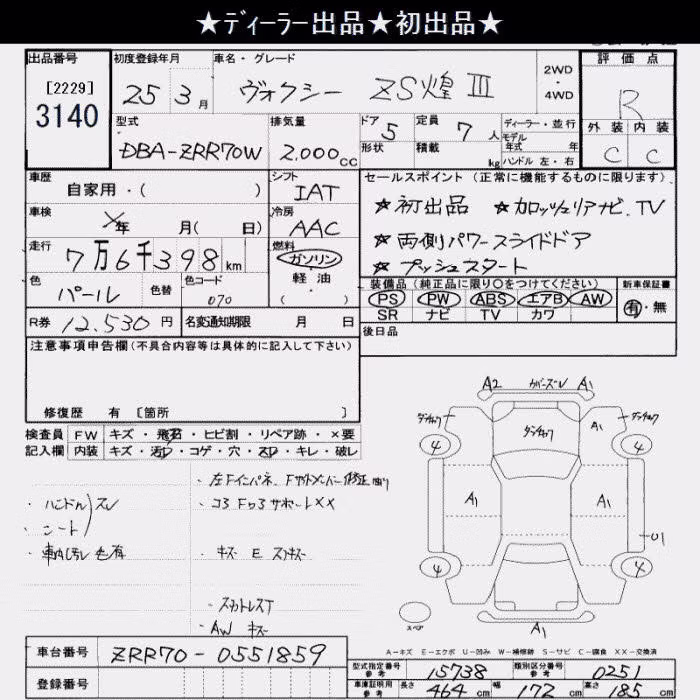 ★ディーラー出品★初出品★
出品番号 初度登録年月 車名・グレード 評価点
[2229] 25 3月 ヴォクシー ZS煌Ⅲ 2WD・4WD R
3140
型式 排気量 ドア 定員 ディーラー・並行 外装 内装
DBA-ZRR70W 2,000cc 5 7人 モデル年式 年 C C
形状 積載 kg ハンドル 左・右
車歴 シフト セールスポイント(正常に機能するものに限ります)
自家用・( ) IAT ★初出品 ★カロッツェリアナビ、TV
車検 年 月( 日) 冷房 AAC ★両側パワースライドドア
走行 7万6千398km 燃料 ガソリン 軽油・( ) ★プッシュスタート
色 パール 色替 色コード 070 装備品(純正品に限り○をつけてください) 新車保証書
PS PW ABS エアB AW 有・無
SR ナビ TV カワ
R券 12,530円 名変通知期限 月 日 後日品
注意事項申告欄(不具合内容等は具体的に記入して下さい)
修復歴 有 [箇所 ]
検査員 FW キズ・飛石・ヒビ割・リペア跡・×要
記入欄 内装 キズ・汚レ・コゲ・穴・スレ・キレ・破レ
A2 カバーズレ A1
ダッシュコウ ダッシュコウ ダッシュコウ A1
4 4
・ハンドル スレ
・シート
A1 A1
・コ3 Fワ3 サポートXX
・キズ E ストキズ
U1
4 4
・AW キズ
スペア A1
A-キズ E-エクボ U-凹み W-補修跡 S-サビ C-腐食 XX-交換済
車台番号 ZRR70-0551859
登録番号
型式指定番号 参考 15738 類別区分番号 参考 0251
車庫証明用 参考 長さ 464cm 幅 172cm 高さ 185cm